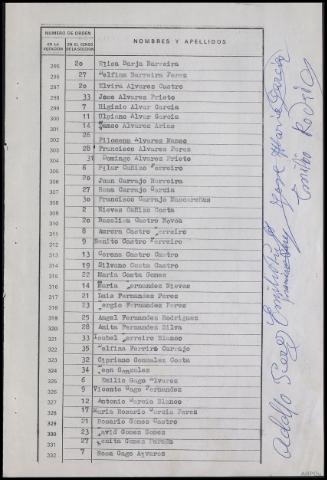 NUMERO DE ORDEN
EN LA VOTACION
EN EL CENSO DE LA SECCION
NOMBRES Y APELLIDOS
295 20 Borja Barreira
296 27 Delfina Barreira Perez
297 20 Elvira Alvarez Castro
298 33 Jose Alvarez Prieto
299 7 Higinio Alvar Garcia
300 11 Ulpiano Alvar Garcia
301 14 Alvarez Arias
302 26 Filomena Alvarez
303 28 Francisco Alvarez Perez
304 31 Domingo Alvarez Prieto
305 6 Pilar Cañizo Ferreiro
306 26 Juan Carrajo Barreira
307 27 Rosa Carrajo Garcia
308 30 Francisco Carrajo
309 2 Nieves Cañizo Costa
310 20 Castro Novoa
311 8 Aurora Castro Ferreiro
312 9 Benito Castro Ferreiro
313 13 Castro Castro
314 19 Silvano Costa Castro
315 22 Maria Costa Gomez
316 14 Maria Fernandez Nieves
317 21 Luis Fernandez Perez
318 23 Sergio Fernandez Perez
319 25 Angel Fernandez Rodriguez
320 28 Anita Fernandez Silva
321 33 Isabel Ferreiro Blanco
322 35 Delfina Ferreiro Carrajo
323 32 Cipriano Gonzalez Costa
324 34 Gonzalez
325 6 Emilio Gago Alvarez
326 9 Vicente Gago Fernandez
327 12 Antonio Garcia Blanco
328 17 Maria Rosario Garcia Perez
329 21 Rosario Gomez Castro
330 23 David Gomez Gomez
331 27 Benita Gomez Parada
332 7 Rosa Gago Alvarez
Adolfo
Jose Maria Garcia
Camilo Rodrig